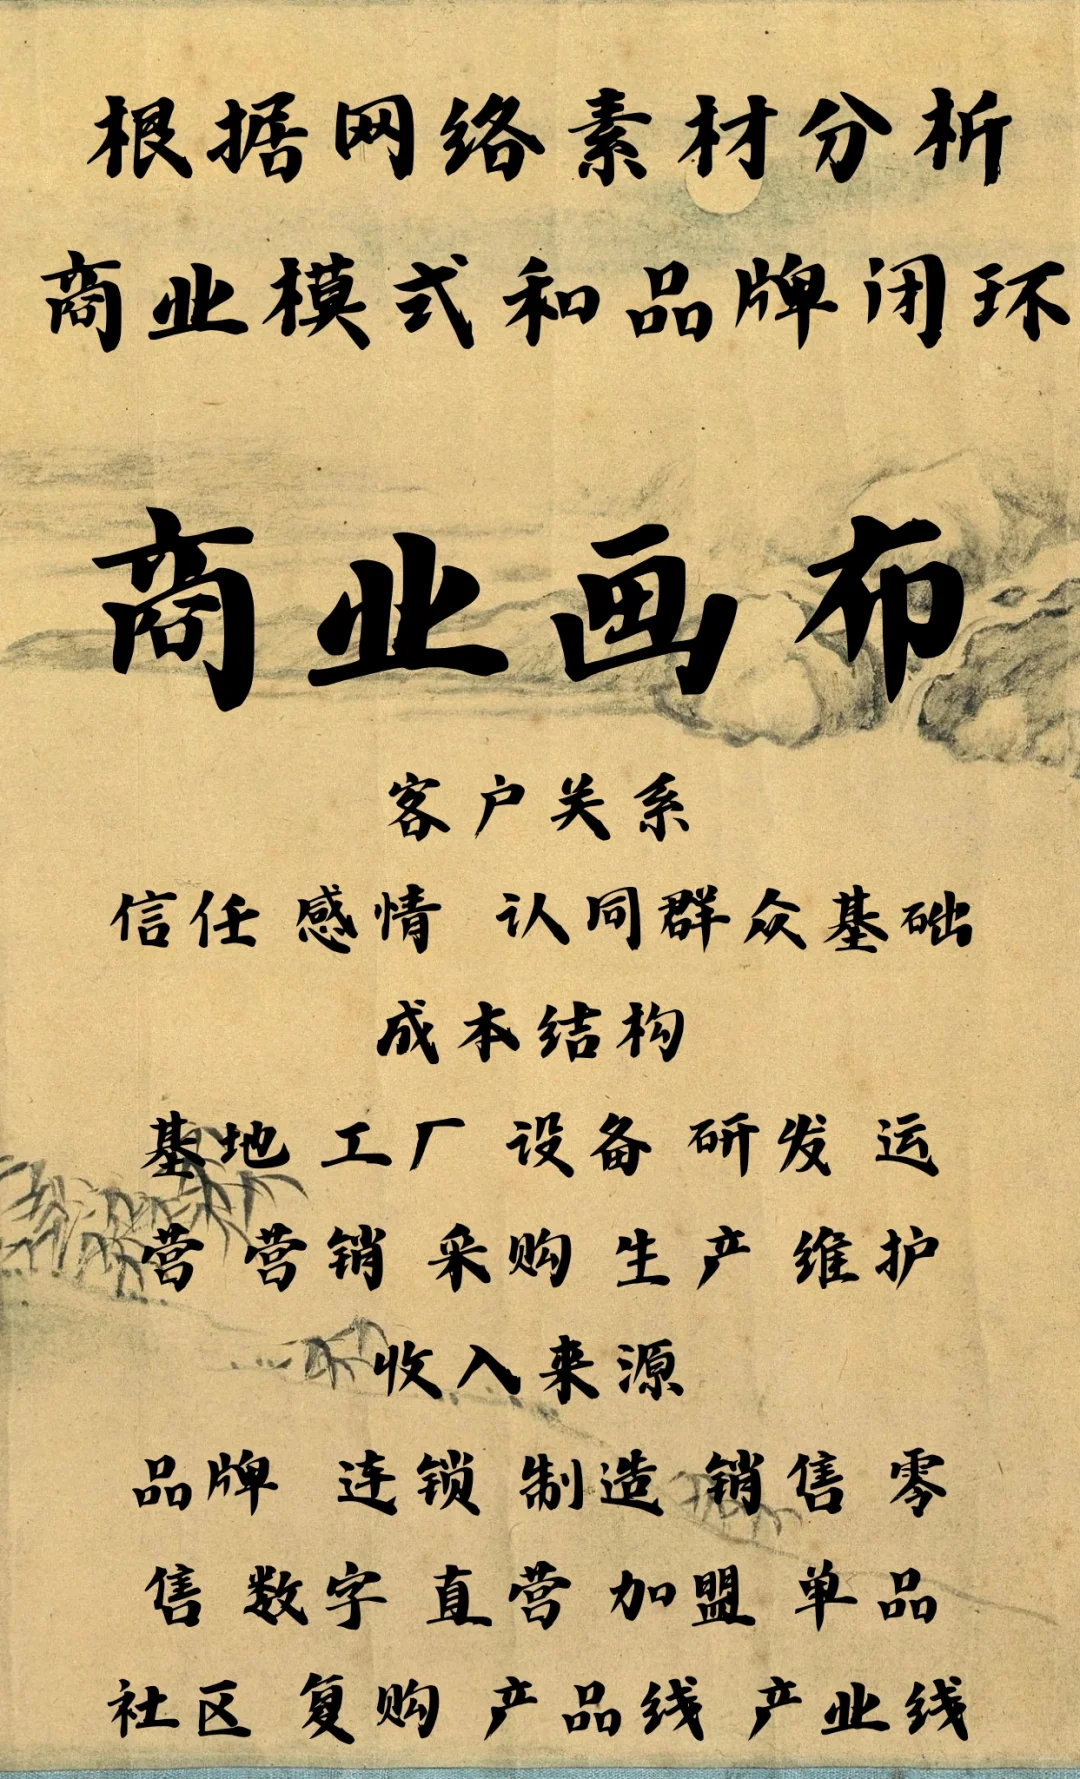 根据网络素材分析
商业模式和品牌闭环
商业画布
客户关系
信任 感情 认同群众基础
成本结构
基地 工厂 设备 研发 运
营 营销 采购 生产 维护
收入来源
品牌 连锁 制造 销售 零
售 数字 直营 加盟 单品
社区 复购 产品线 产业线